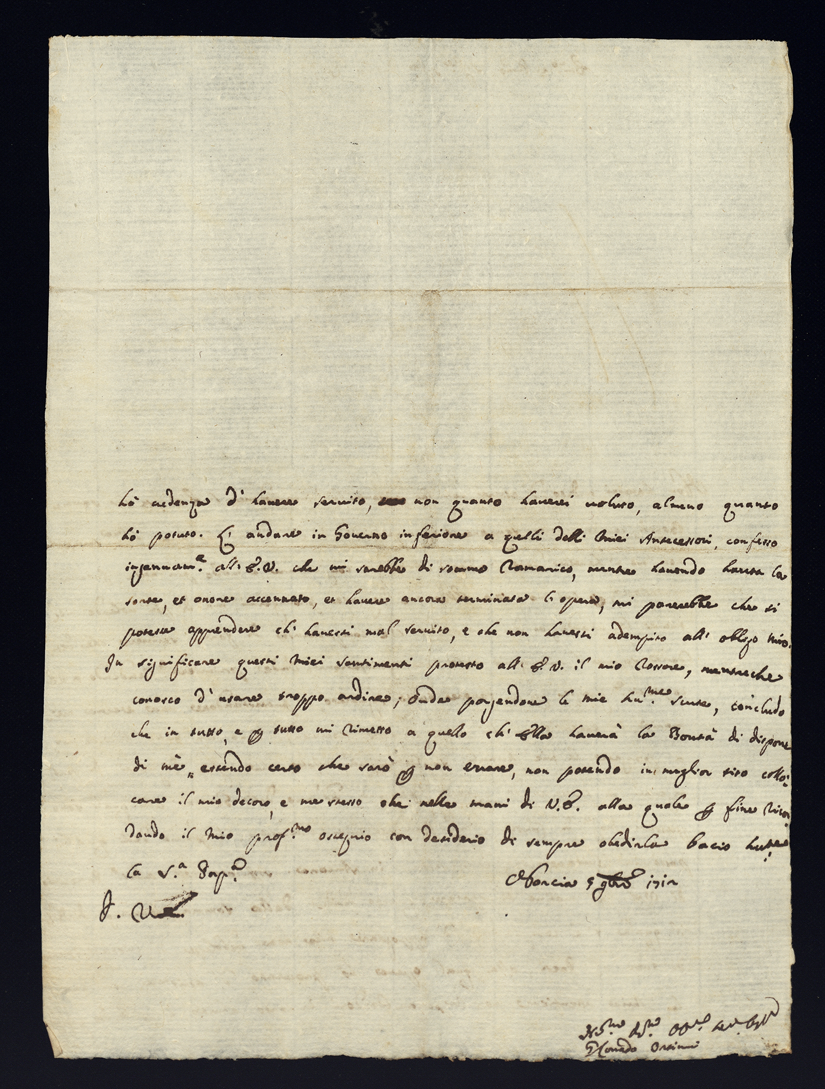 hò credenza d' havere servito, non quanto haverei voluto, almeno quanto
hò potuto. L' andare in Governo inferiore a quelli delli Miei Antecessori, confesso
ingenuam.e all' E.V. che mi sarebbe di sommo Ramarico, mentre havendo havuta la
sorte, et onore accennato, et havere ancora terminata l' opera, mi parerebbe che si
potesse apprendere ch' havessi mal servito, e che non havessi adempito all' obligo mio.
In significare questi Miei sentimenti protesto all' E.V. il mio Rossore, mentreche
conosco d' usare troppo ardire; Onde porgendone le mie hu.me scuse, concludo
che in tutto, e p tutto mi rimetto a quello ch' Ella haverà la Bontà di disporre
di mè, essendo certo che sarò p non errare, non potendo in miglior sito collo-
care il mio decoro, e me stesso che nelle mani di V.E. alla quale p fine
il mio prof.mo ossequio con desiderio di sempre obedirla bacio
la V.a
Norcia 5 9bre 1712
Orsini